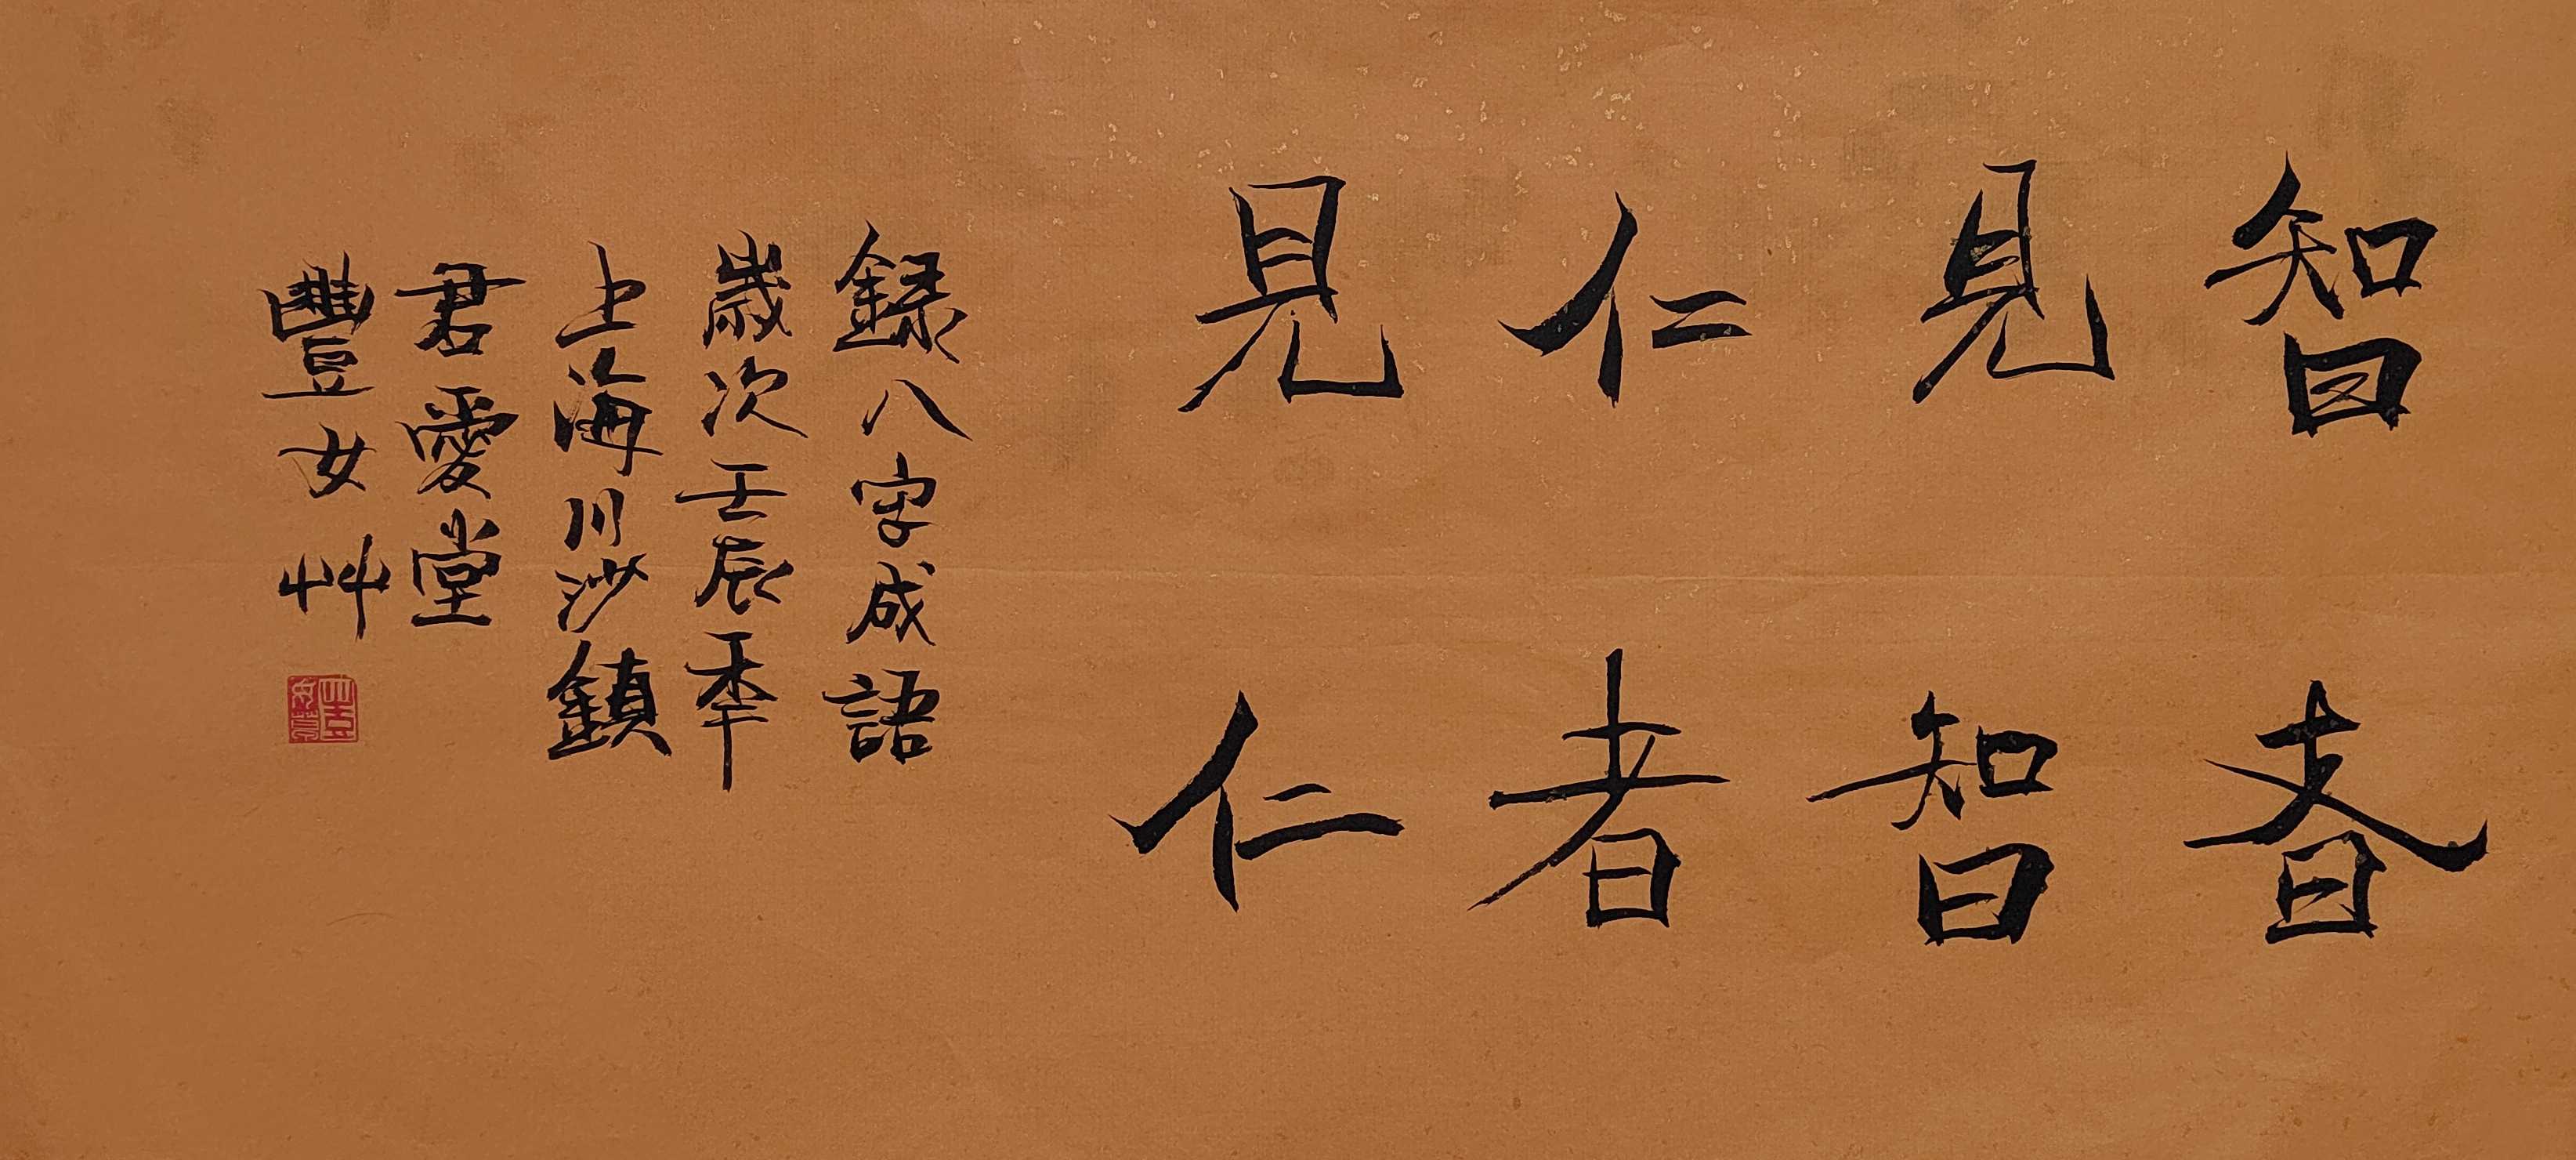 智者
見智
仁者
見仁
録八字成語
歲次壬辰季
上海川沙鎮
君愛堂
豐女艸